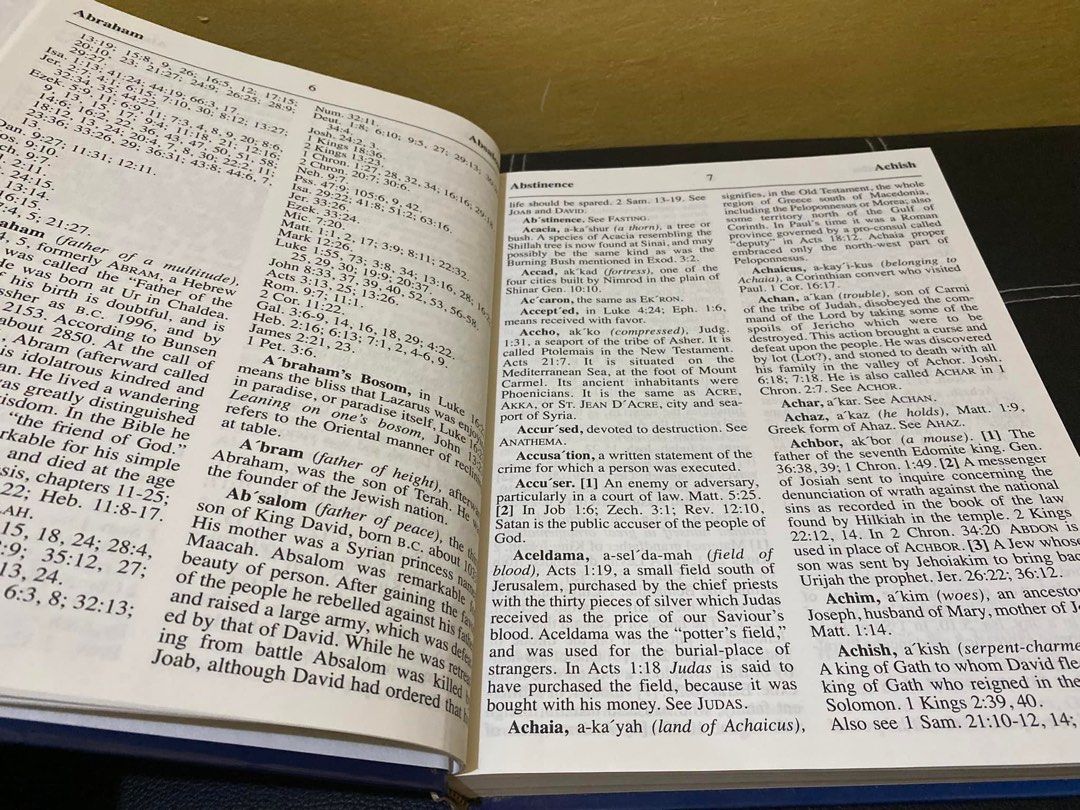 Abraham
6
13:19; 15:8, 9, 26; 16:5, 12; 17:15;
20:10, 23; 21:27; 24:9; 26:25; 28:9;
29:27.
Isa. 1:13; 41:24; 44:19; 66:3, 17.
Jer. 2:7; 4:1; 6:15; 7:10, 30; 8:12; 13:27;
32:34, 35; 44:22.
Ezek. 5:9, 11; 6:9, 11; 7:3, 4, 8, 9, 20; 8:6,
9, 13, 15, 17; 9:4; 11:18, 21; 12:16;
14:6; 16:2, 22, 36, 43, 47, 50, 51, 58;
18:12, 13, 24; 20:4, 7, 8, 30; 22:2, 11;
23:36; 33:26, 29; 36:31; 43:8; 44:6, 7,
13.
Dan. 9:27; 11:31; 12:11.
9:10.
9:7.
2:11.
24:15.
13:14.
16:15.
4, 5; 21:27.
(father of a multitude),
4, 5, formerly ABRAM, a Hebrew
was called the "Father of the
He was born at Ur in Chaldea.
his birth is doubtful, and is
B.C. 1996, and by
2153. According to Bunsen
about 2850. At the call of
Abram (afterward called
his idolatrous kindred and
He lived a wandering
was greatly distinguished
In the Bible he
"the friend of God."
for his simple
and died at the age
chapters 11-25;
22; Heb. 11:8-17.
15, 18, 24; 28:4,
35:12, 27;
13, 24.
6:3, 8; 32:13;
Num. 32:11.
Deut. 1:8; 6:10; 9:5, 27; 29:13;
34:4.
Josh. 24:2, 3.
1 Kings 18:36.
2 Kings 13:23.
1 Chron. 1:27, 28, 32, 34; 16:16; 29:18.
2 Chron. 20:7; 30:6.
Neh. 9:7.
Pss. 47:9; 105:6, 9, 42.
Isa. 29:22; 41:8; 51:2; 63:16.
Jer. 33:26.
Ezek. 33:24.
Mic. 7:20.
Matt. 1:1, 2, 17; 3:9; 8:11; 22:32.
Mark 12:26.
Luke 1:55, 73; 3:8, 34; 13:16, 28; 16:
25, 29, 30; 19:9; 20:37.
John 8:33, 39, 40, 52, 53, 56-58.
Acts 3:13, 25; 13:26.
Rom. 9:7; 11:1.
2 Cor. 11:22.
Gal. 3:6-9, 14, 16, 18, 29; 4:22.
Heb. 2:16; 6:13; 7:1, 2, 4-6, 9.
James 2:21, 23.
1 Pet. 3:6.
A´braham's Bosom, in Luke
means the bliss that Lazarus was
in paradise, or paradise itself, Luke
Leaning on one's bosom, John
refers to the Oriental manner of
at table.
A´bram (father of height),
Abraham, was the son of Terah. He
the founder of the Jewish nation.
Ab´salom (father of peace), the
son of King David, born B.C. about
His mother was a Syrian princess
Maacah. Absalom was remarkable
beauty of person. After gaining the
of the people he rebelled against his
and raised a large army, which was
ed by that of David. While he was
ing from battle Absalom was killed
Joab, although David had ordered that
Abstinence
7
Achish
life should be spared. 2 Sam. 13-19. See
JOAB and DAVID.
Ab´stinence. See FASTING.
Acacia, a-ka´shur (a thorn), a tree or
bush. A species of Acacia resembling the
Shillah tree is now found at Sinai, and may
possibly be the same kind as was the
Burning Bush mentioned in Exod. 3:2.
Accad, ak´kad (fortress), one of the
four cities built by Nimrod in the plain of
Shinar Gen. 10:10.
Ac´caron, the same as EK´RON.
Accept´ed, in Luke 4:24; Eph. 1:6,
means received with favor.
Accho, ak´ko (compressed), Judg.
1:31, a seaport of the tribe of Asher. It is
called Ptolemais in the New Testament.
Acts 21:7. It is situated on the
Mediterranean Sea, at the foot of Mount
Carmel. Its ancient inhabitants were
Phoenicians. It is the same as ACRE,
AKKA, or ST. JEAN D´ACRE, city and sea-
port of Syria.
Accur´sed, devoted to destruction. See
ANATHEMA.
Accusa´tion, a written statement of the
crime for which a person was executed.
Accu´ser. [1] An enemy or adversary,
particularly in a court of law. Matt. 5:25.
[2] In Job 1:6; Zech. 3:1; Rev. 12:10,
Satan is the public accuser of the people of
God.
Aceldama, a-sel´da-mah (field of
blood), Acts 1:19, a small field south of
Jerusalem, purchased by the chief priests
with the thirty pieces of silver which Judas
received as the price of our Saviour's
blood. Aceldama was the "potter's field,"
and was used for the burial-place of
strangers. In Acts 1:18 Judas is said to
have purchased the field, because it was
bought with his money. See JUDAS.
Achaia, a-ka´yah (land of Achaicus),
signifies, in the Old Testament, the whole
region of Greece south of Macedonia,
including the Peloponnesus or Morea; also
some territory north of the Gulf of
Corinth. In Paul's time it was a Roman
province governed by a pro-consul called
"deputy" in Acts 18:12. Achaia proper
embraced only the north-west part of
Peloponnesus.
Achaicus, a-kay´i-kus (belonging to
Achaia), a Corinthian convert who visited
Paul. 1 Cor. 16:17.
Achan, a´kan (trouble), son of Carmi
of the tribe of Judah, disobeyed the com-
mand of the Lord by taking some of the
spoils of Jericho which were to be
destroyed. This action brought a curse and
defeat upon the people. He was discovered
by lot (Lot?), and stoned to death with all
his family in the valley of Achor. Josh.
6:18; 7:18. He is also called ACHAR in 1
Chron. 2:7. See ACHOR.
Achar, a´kar. See ACHAN.
Achaz, a´kaz (he holds), Matt. 1:9,
Greek form of Ahaz. See AHAZ.
Achbor, ak´bor (a mouse). [1] The
father of the seventh Edomite king. Gen.
36:38, 39; 1 Chron. 1:49. [2] A messenger
of Josiah sent to inquire concerning the
denunciation of wrath against the national
sins as recorded in the book of the law
found by Hilkiah in the temple. 2 Kings
22:12, 14. In 2 Chron. 34:20 ABDON is
used in place of ACHBOR. [3] A Jew whose
son was sent by Jehoiakim to bring
Urijah the prophet. Jer. 26:22; 36:12.
Achim, a´kim (woes), an
Joseph, husband of Mary, mother of
Matt. 1:14.
Achish, a´kish
A king of Gath to whom David
king of Gath who reigned in the
Solomon. 1 Kings 2:39, 40.
Also see 1 Sam. 21:10-12, 14;